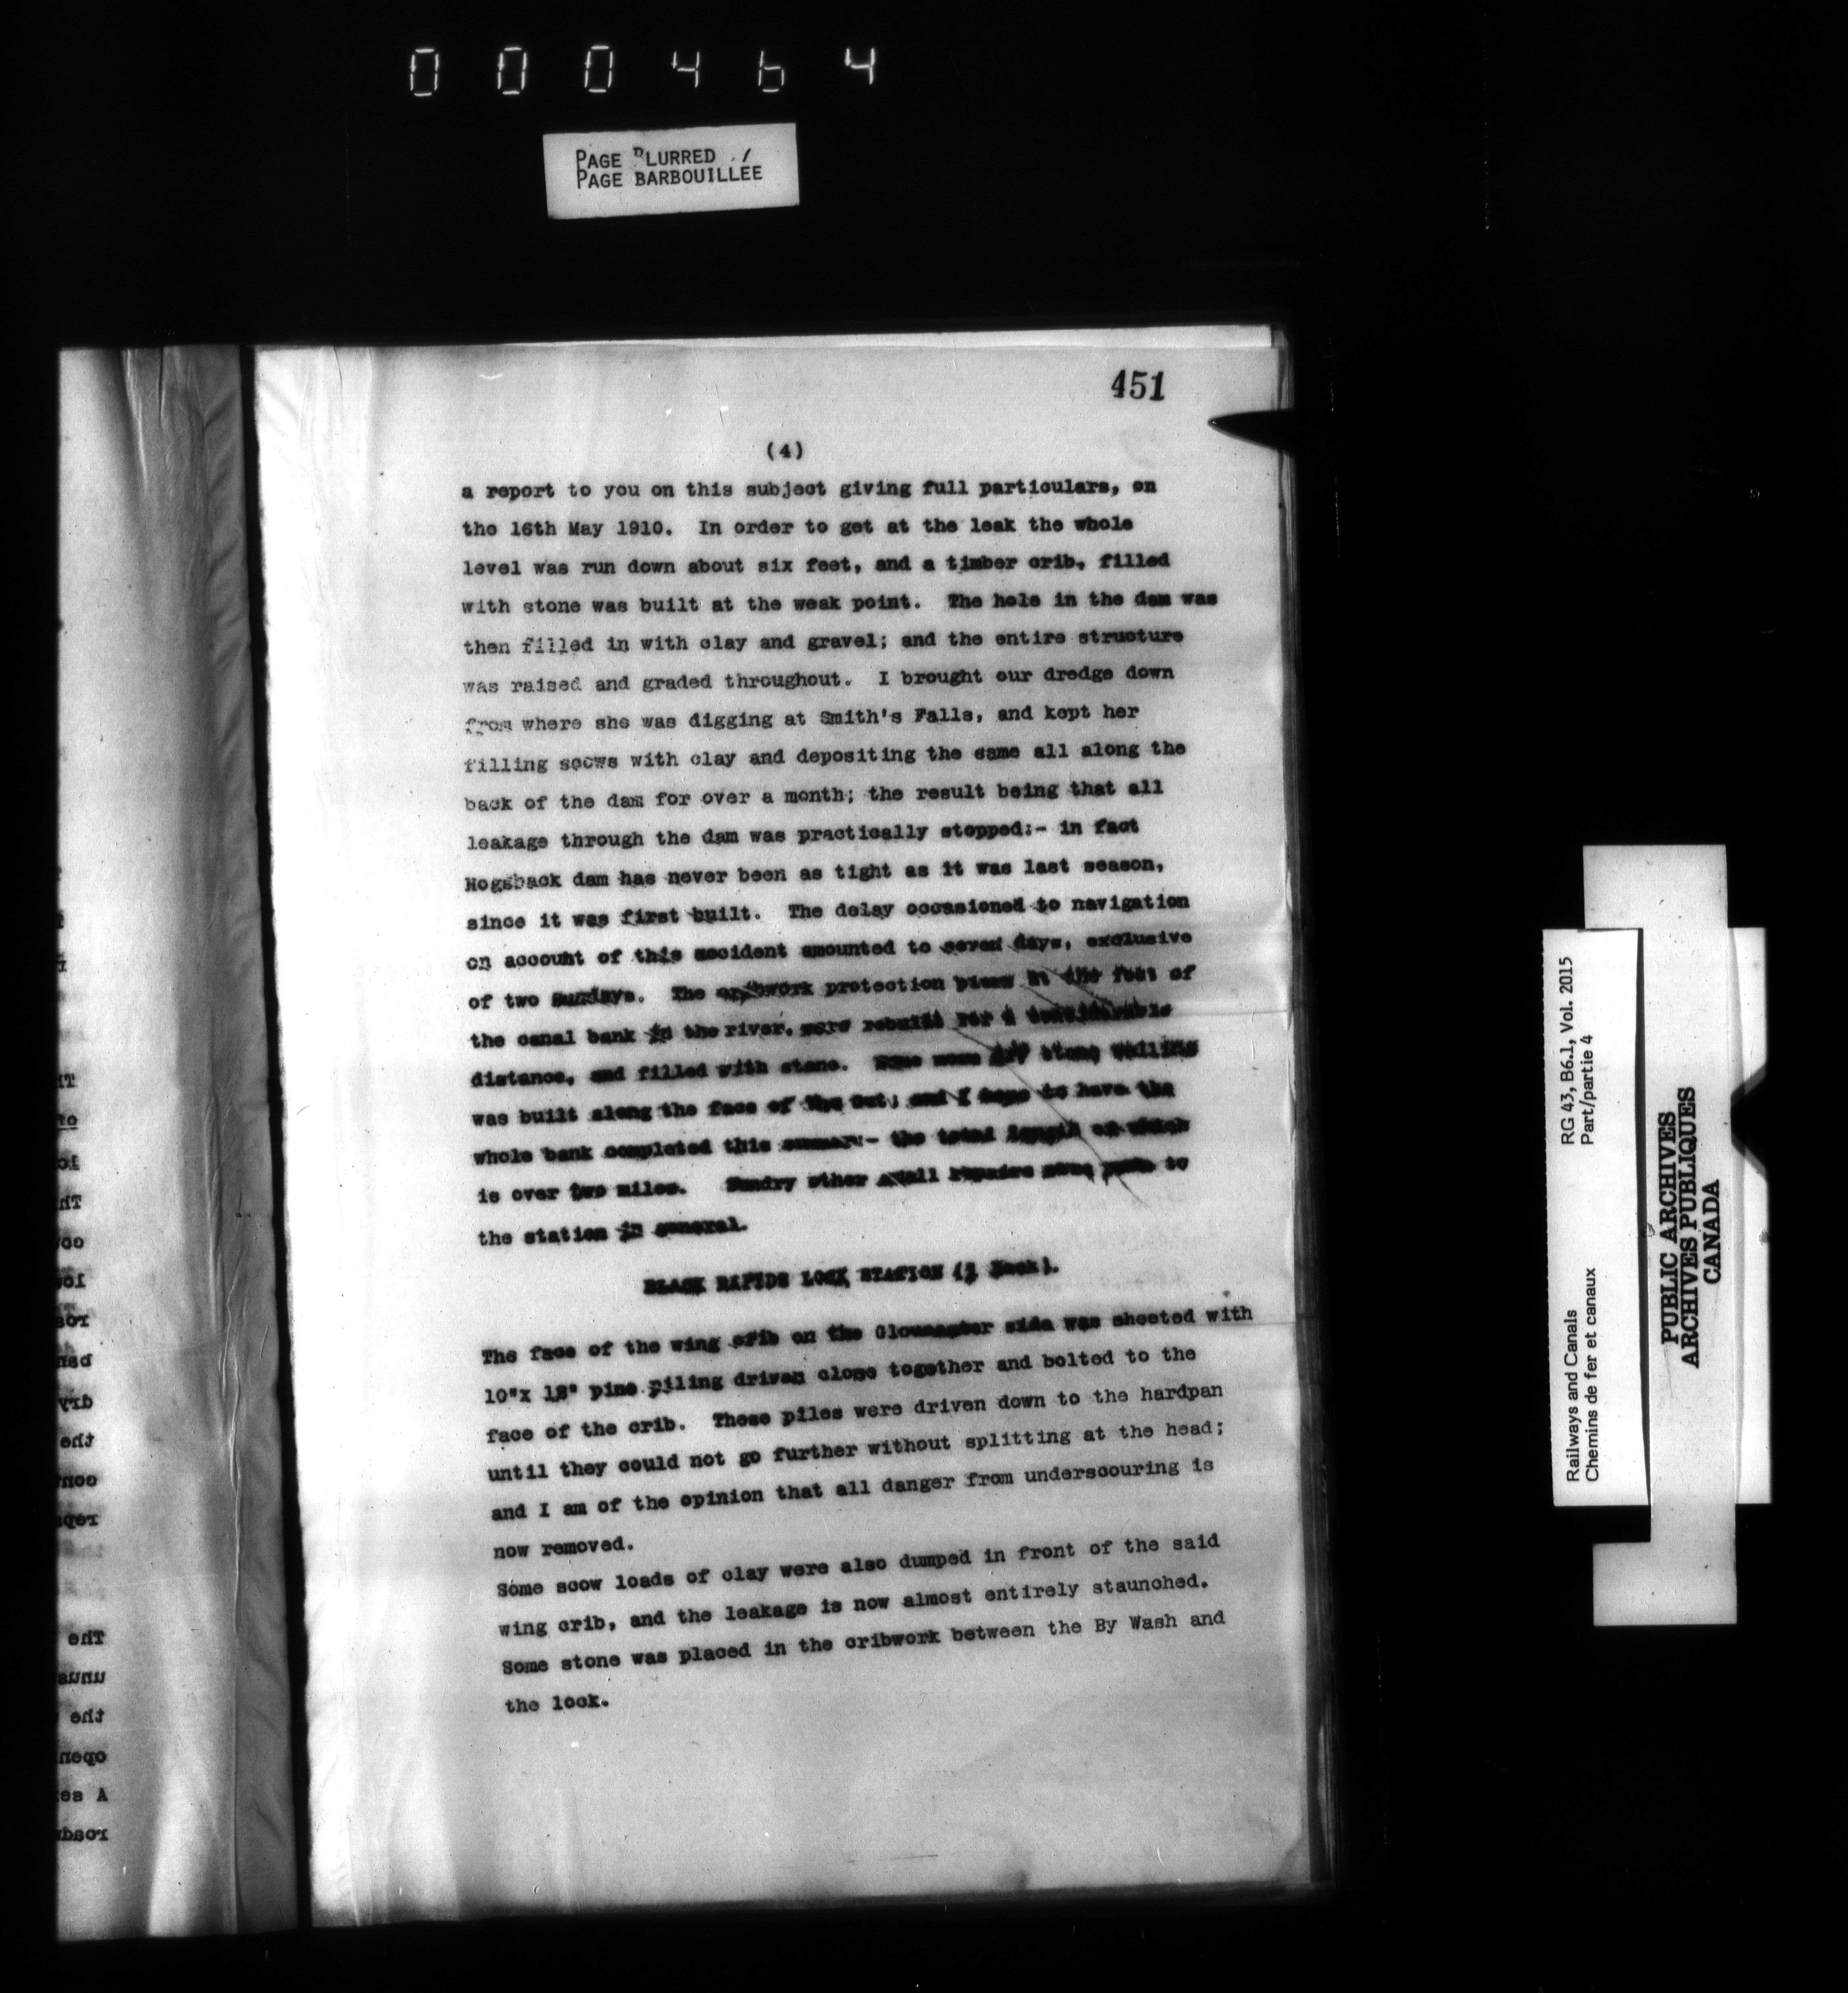 000464
PAGE BLURRED
PAGE BARBOUILLEE
451
(4)
a report to you on this subject giving full particulars, on
the 16th May 1910. In order to get at the leak the whole
level was run down about six feet, and a timber crib, filled
with stone was built at the weak point. The hole in the dam was
then filled in with clay and gravel; and the entire structure
was raised and graded throughout. I brought our dredge down
from where she was digging at Smith's Falls, and kept her
filling scows with clay and depositing the same all along the
back of the dam for over a month; the result being that all
leakage through the dam was practically stopped:- in fact
Hogsback dam has never been as tight as it was last season,
since it was first built. The delay occasioned to navigation
on account of this accident amounted to seven days, exclusive
of two Sundays. The cribwork protection piers at the foot of
the canal bank in the river, were rebuilt for a considerable
distance, and filled with stone. Some more dry stone walling
was built along the face of the Cut; and I hope to have the
whole bank completed this summer:- the total length of which
is over two miles. Sundry other small repairs were made to
the station in general.
BLACK RAPIDS LOCK STATION (1 Lock).
The face of the wing crib on the Gloucester side was sheeted with
10"x 12" pine piling driven close together and bolted to the
face of the crib. These piles were driven down to the hardpan
until they could not go further without splitting at the head;
and I am of the opinion that all danger from underscouring is
now removed.
Some scow loads of clay were also dumped in front of the said
wing crib, and the leakage is now almost entirely staunched.
Some stone was placed in the cribwork between the By Wash and
the lock.
Railways and Canals RG 43, B6.1, Vol. 2015
Chemins de fer et canaux Part/partie 4
PUBLIC ARCHIVES
ARCHIVES PUBLIQUES
CANADA